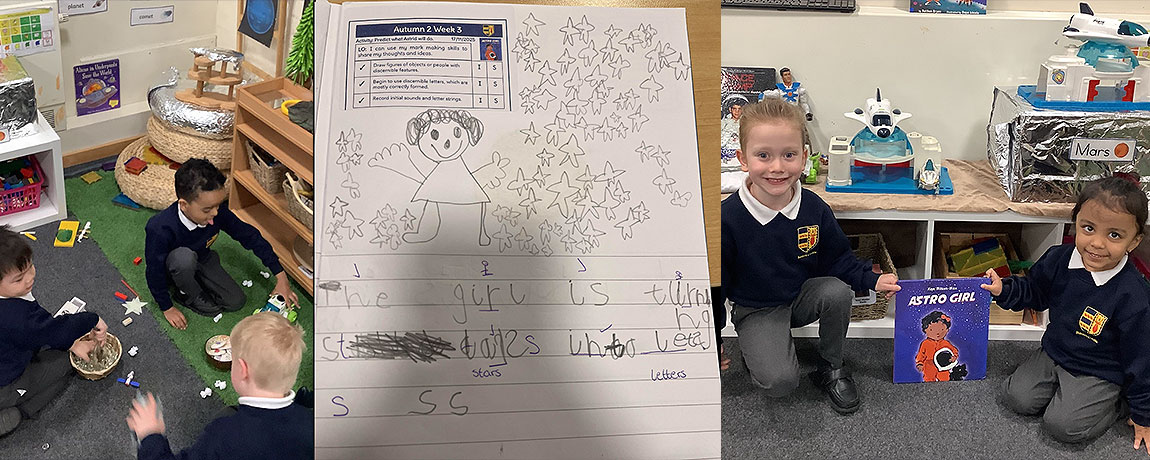 planet
comet
Aliens in Underpants
Save the World
Autumn 2 Week 3
Activity: Predict what Astrid will do. 17/11/2025
LO: I can use my mark making skills to
share my thoughts and ideas. I S
✓ Draw figures of objects or people with
discernible features. I S
✓ Begin to use discernible letters, which are
mostly correctly formed. I S
✓ Record initial sounds and letter strings. I S
The girl is turni
ng
into
stars letters
s ss
SPACE
Mars
ASTRO GIRL